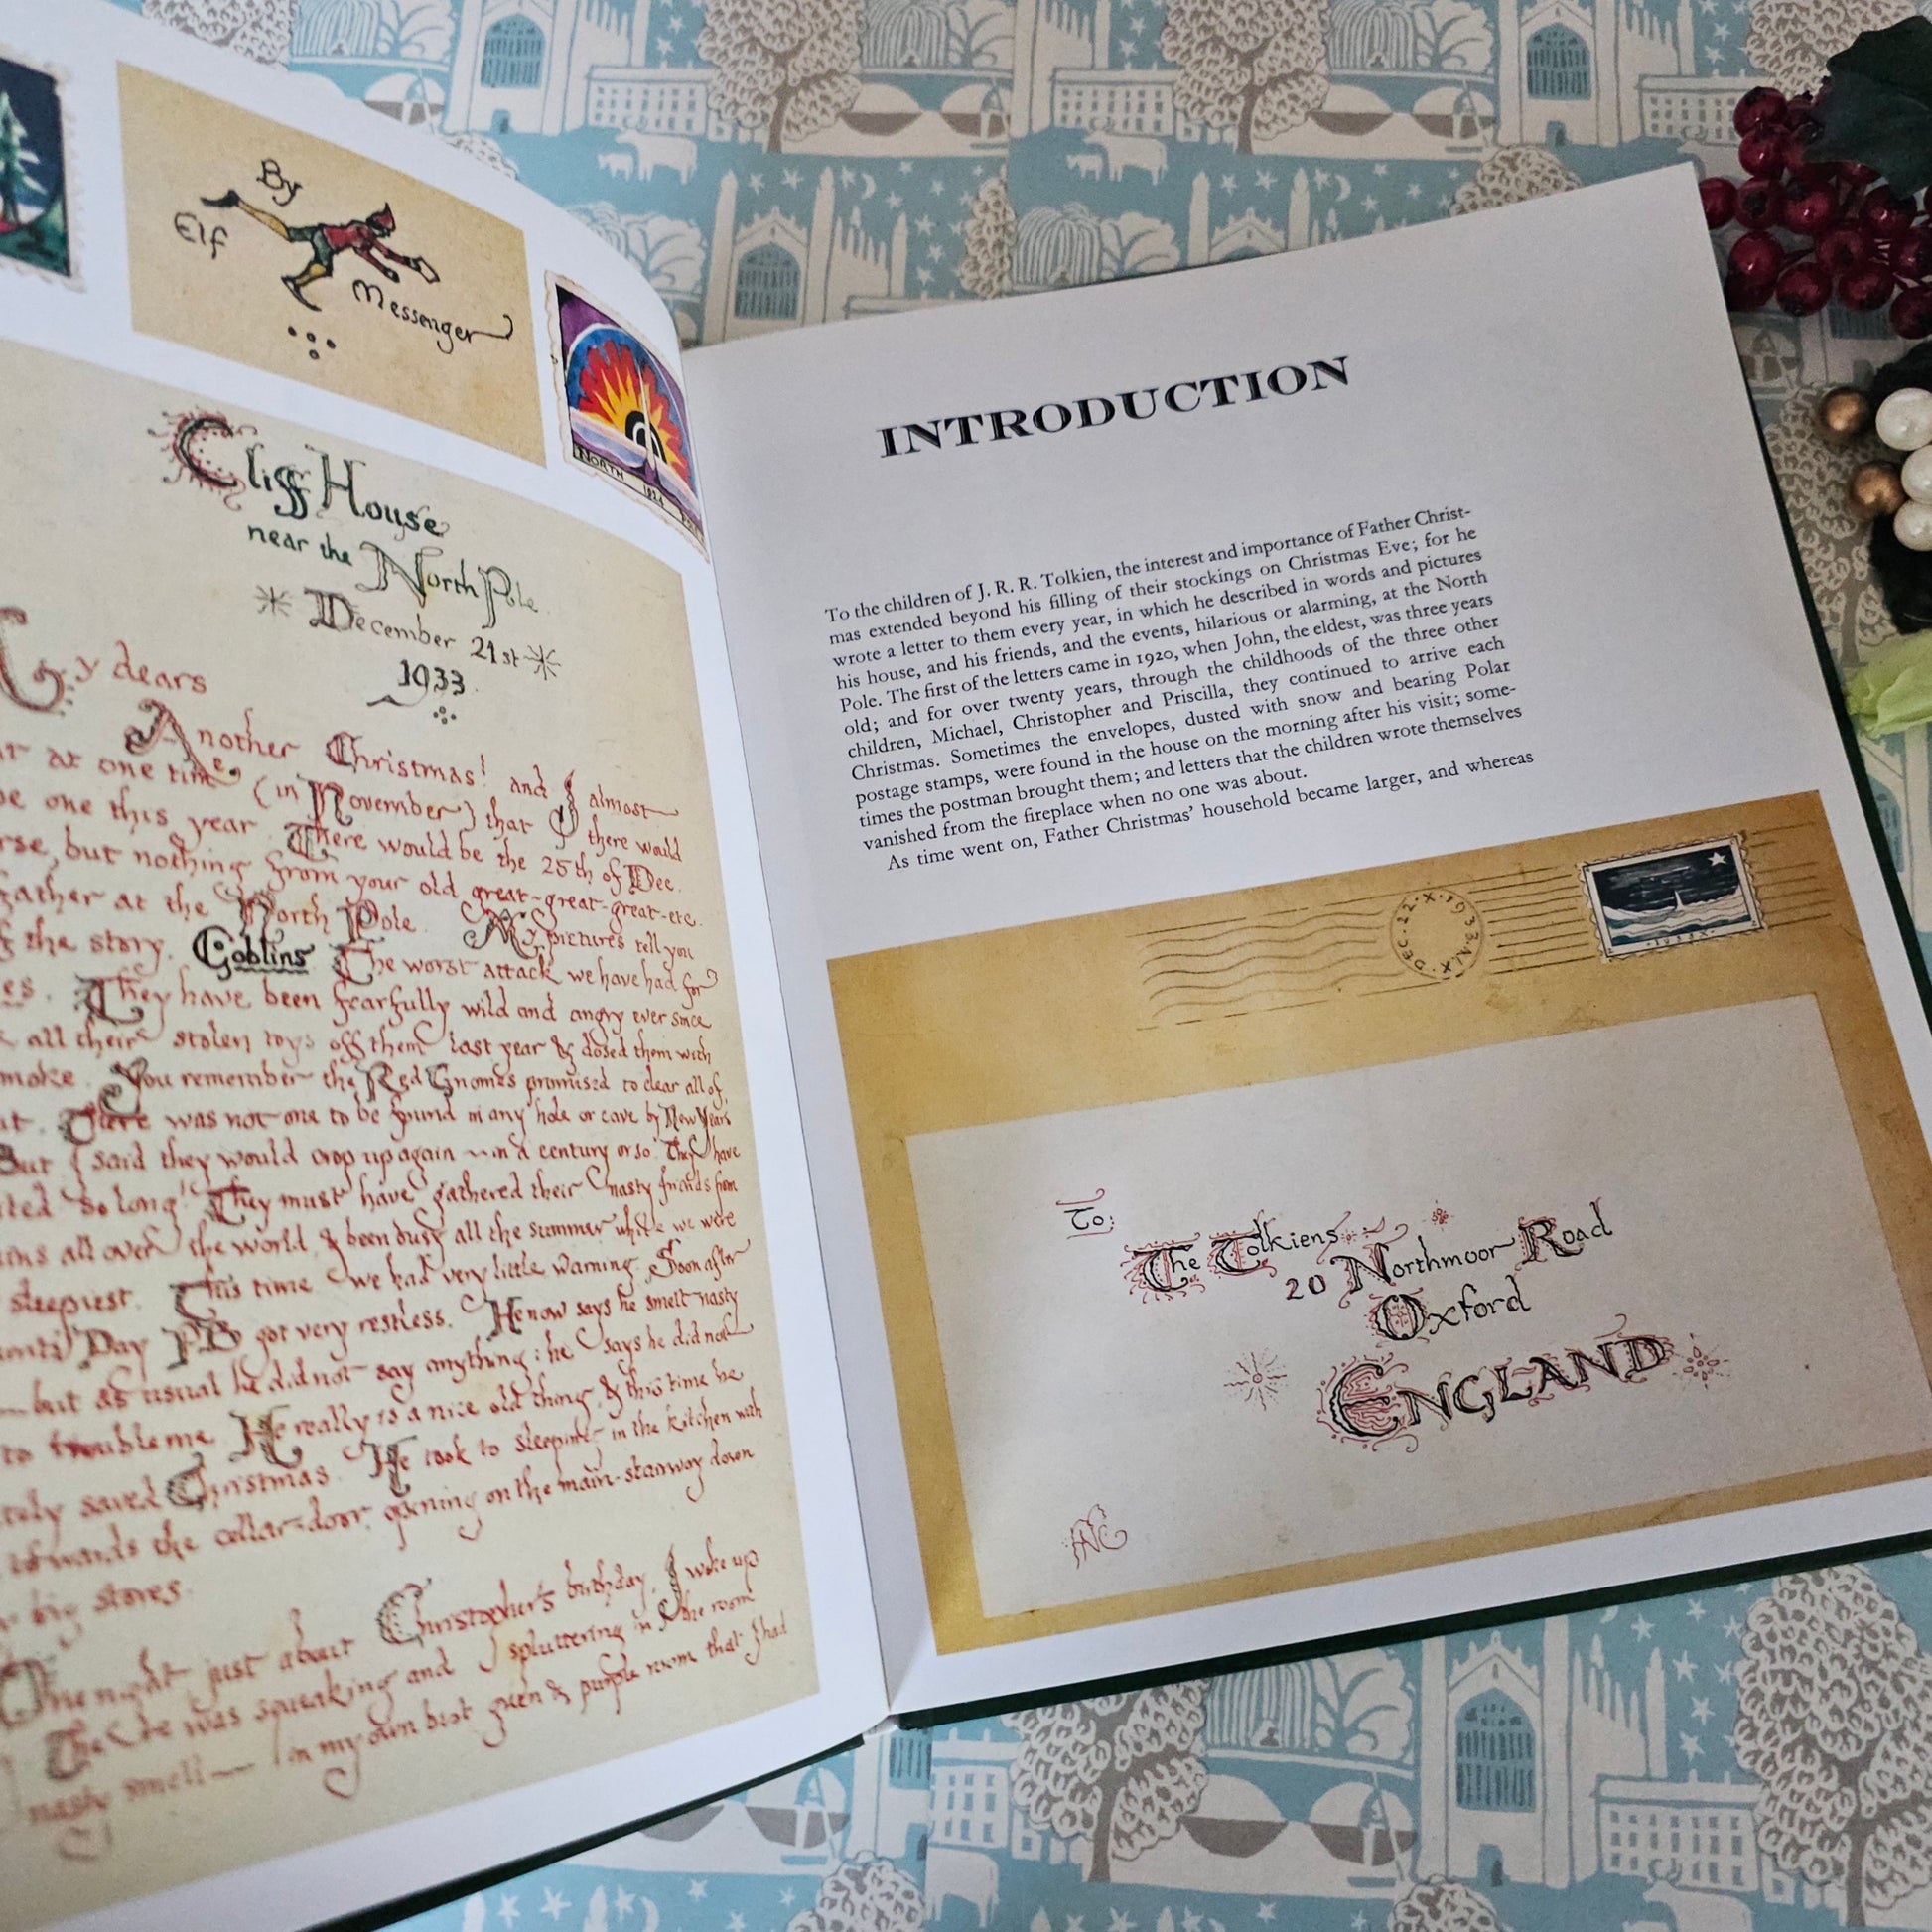 By
Elf
Messenger
NORTH 1924
Cliff House
near the North Pole
December 21st
1933
My dears
Another Christmas! and I almost
at one time (in November) that there would
be one this year. There would be the 25th of Dec.
but nothing from your old great-great-great-etc.
at the North Pole. My pictures tell you
the story. Goblins. The worst attack we have had for
They have been fearfully wild and angry ever since
all their stolen toys off them last year & dosed them with
You remember the Red Gnomes promised to clear all of
There was not one to be found in any hole or cave by New Years
But I said they would crop up again — in a century or so. They have
so long! They must have gathered their nasty friends from
all over the world, & been busy all the summer while we were
sleepiest. This time we had very little warning. Soon after
Day PB got very restless. He now says he smelt nasty
— but as usual he did not say anything: he says he did not
to trouble me. He really is a nice old thing, & this time he
saved Christmas. He took to sleeping in the kitchen with
towards the cellar-door, opening on the main-stairway down
big stores.
One night, just about Christopher's birthday, I woke up
There was squeaking and spluttering in the room
nasty smell — in my own best green & purple room that I had
INTRODUCTION
To the children of J. R. R. Tolkien, the interest and importance of Father Christ-
mas extended beyond his filling of their stockings on Christmas Eve; for he
wrote a letter to them every year, in which he described in words and pictures
his house, and his friends, and the events, hilarious or alarming, at the North
Pole. The first of the letters came in 1920, when John, the eldest, was three years
old; and for over twenty years, through the childhoods of the three other
children, Michael, Christopher and Priscilla, they continued to arrive each
Christmas. Sometimes the envelopes, dusted with snow and bearing Polar
postage stamps, were found in the house on the morning after his visit; some-
times the postman brought them; and letters that the children wrote themselves
vanished from the fireplace when no one was about.
As time went on, Father Christmas' household became larger, and whereas
To:
The Tolkiens
20 Northmoor Road
Oxford
ENGLAND